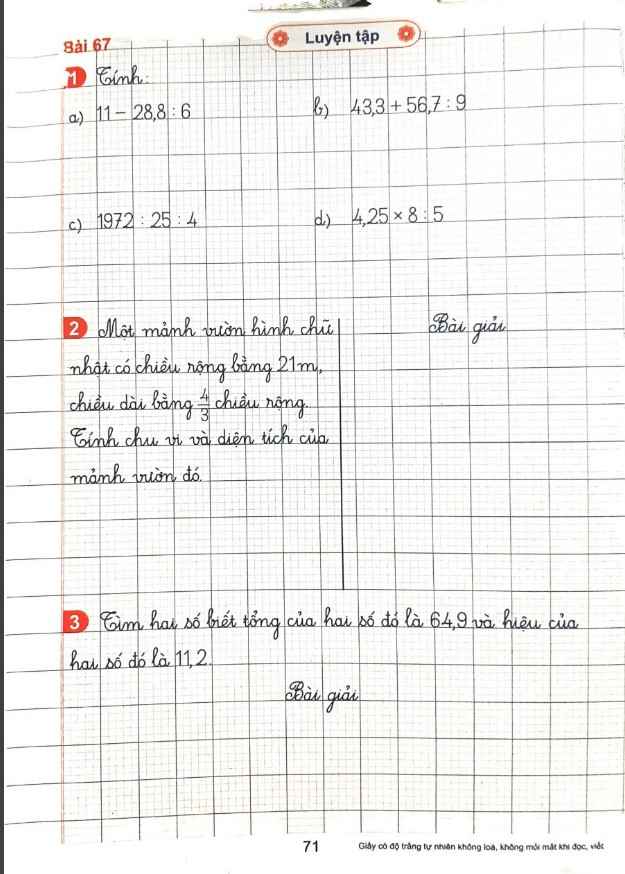 Bài 67
Luyện tập
1 Tính:
a) 11 - 28,8 : 6
b) 43,3 + 56,7 : 9
c) 1972 : 25 : 4
d) 4,25 × 8 : 5
2 Một mảnh vườn hình chữ
nhật có chiều rộng bằng 21m,
chiều dài bằng 4/3 chiều rộng.
Tính chu vi và diện tích của
mảnh vườn đó.
Bài giải
3 Tìm hai số biết tổng của hai số đó là 64,9 và hiệu của
hai số đó là 11,2.
Bài giải
71
Giấy có độ trắng tự nhiên không loá, không mỏi mắt khi đọc, viết